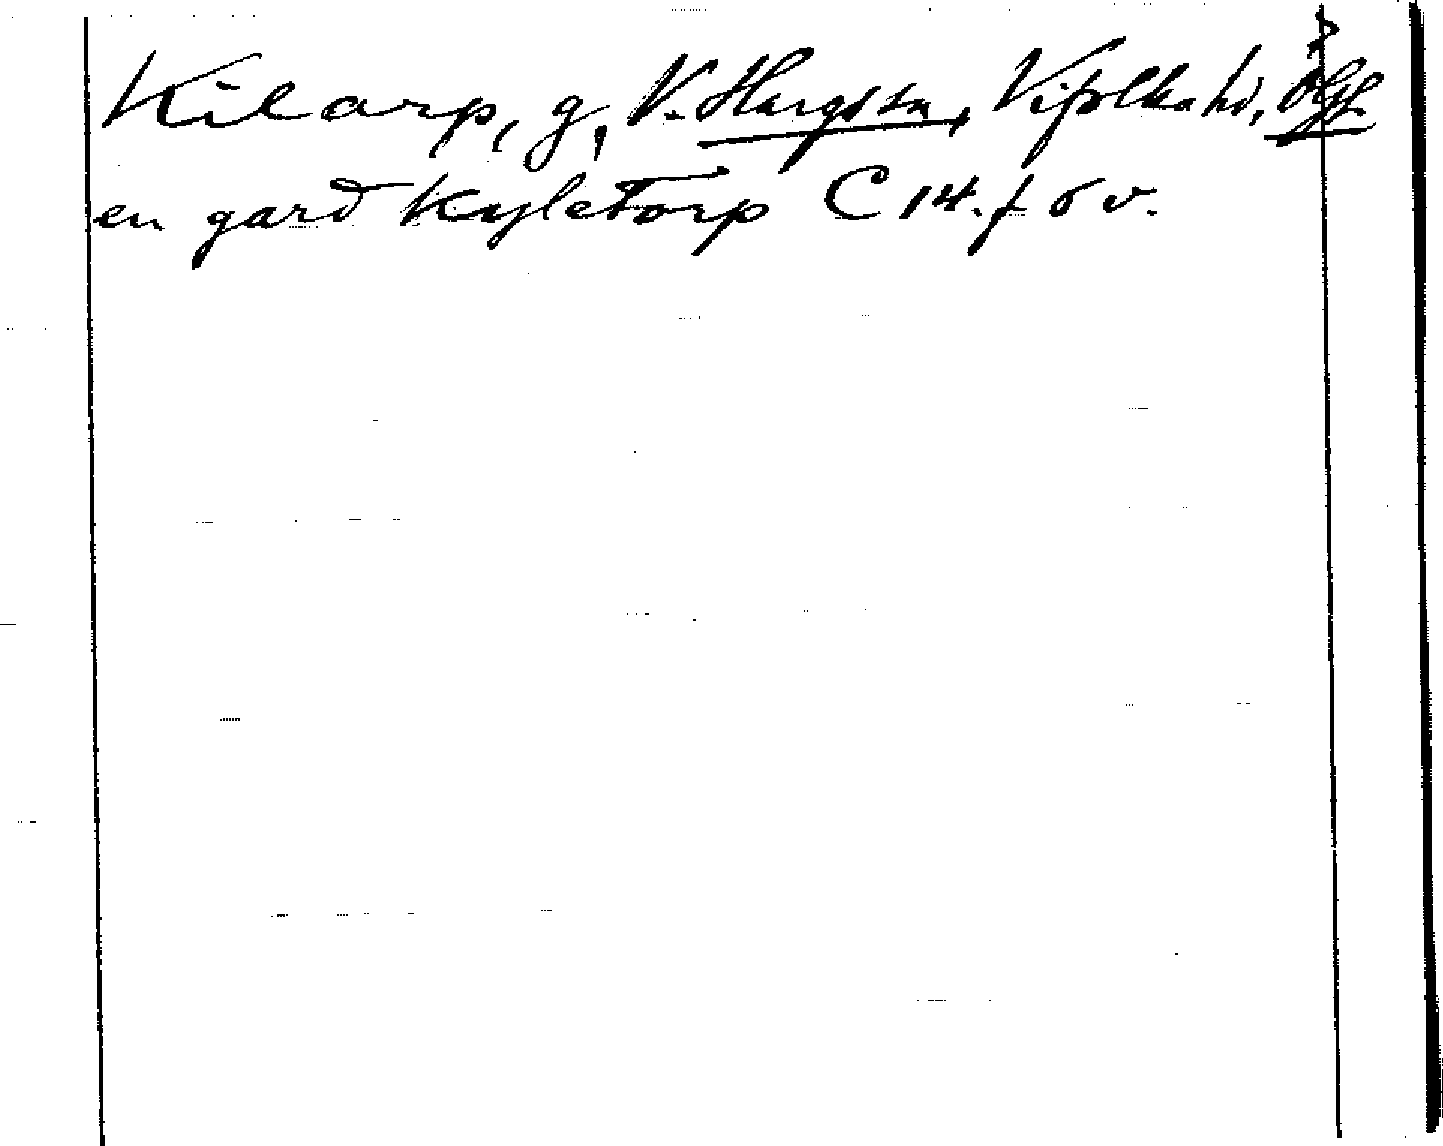 Kilarp, g, V. Hargs sn, Vifolka hd, Ögtl.
en gard Kyletorp C 14. f 6 v.